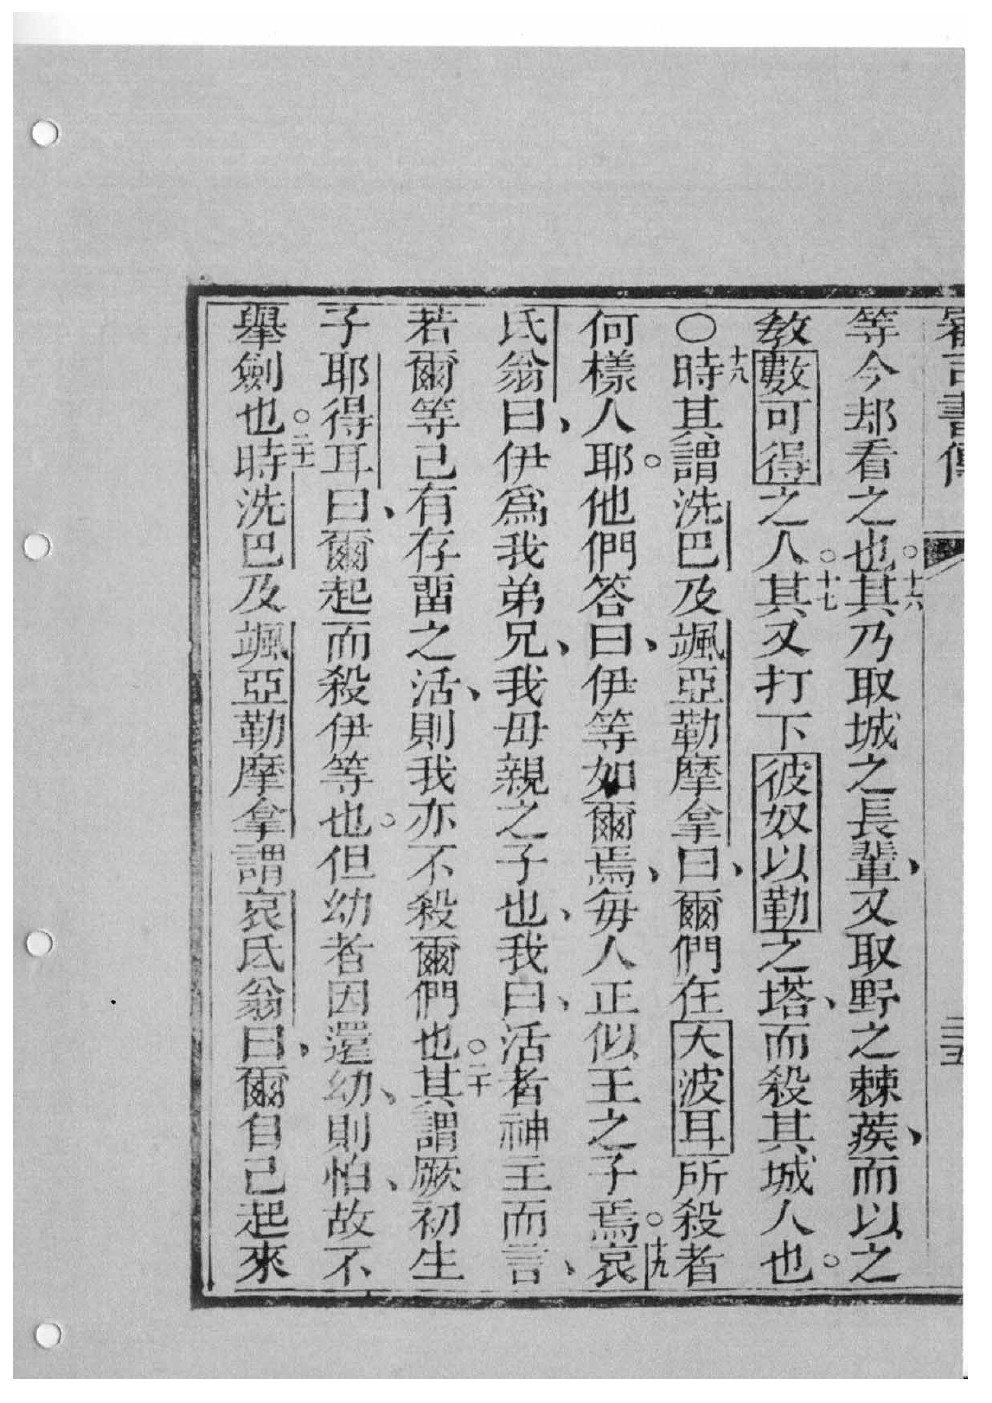 審司書傳 三五
等今却看之也○十六其乃取城之長輩、又取野之棘蒺、而以之
教數可得之人○十七其又打下彼奴以勒之塔、而殺其城人也。
○十九時其謂洗巴及颯亞勒摩拿曰、爾們在大波耳所殺者
何樣人耶。他們答曰、伊等如爾焉、每人正似王之子焉○十九哀
氐翁曰、伊爲我弟兄、我母親之子也、我曰、活者神主而言、
若爾等己有存畱之活、則我亦不殺爾們也○二十其謂厥初生
子耶得耳曰、爾起而殺伊等也。但幼者因還幼、則怕、故不
舉劍也○二十一時洗巴及颯亞勒摩拿謂哀氐翁曰、爾自己起來